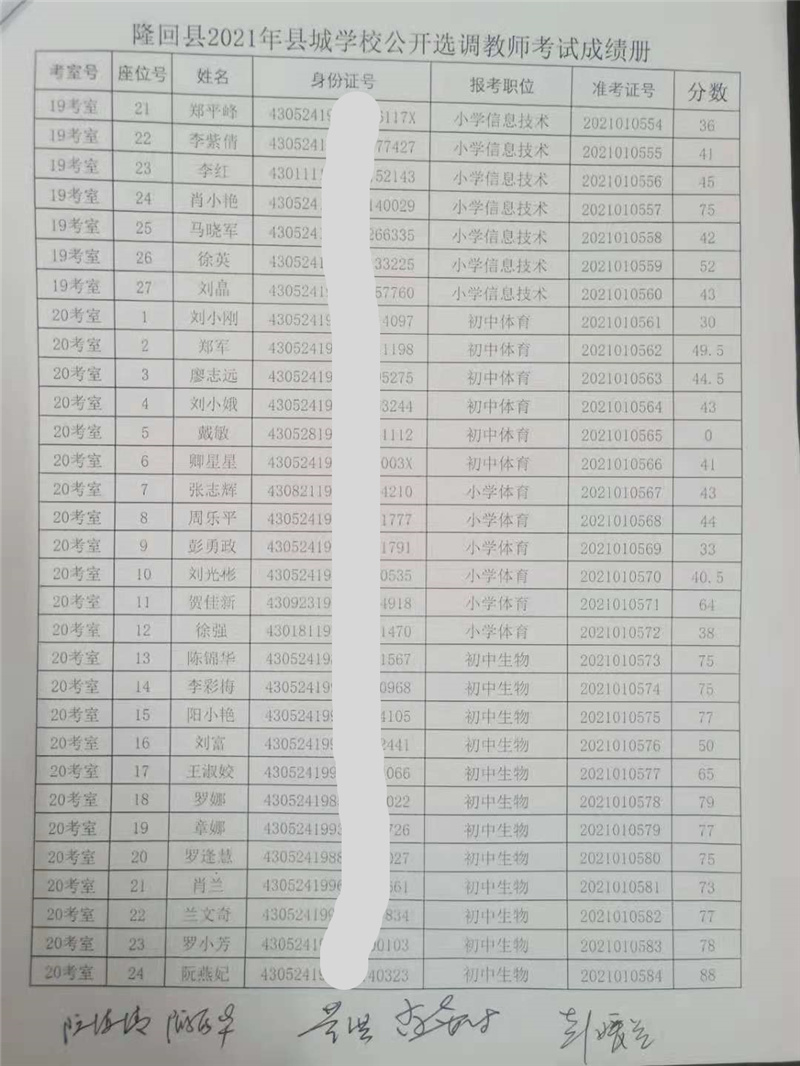 隆回县2021年县城学校公开选调教师考试成绩册
考室号 座位号 姓名 身份证号 报考职位 准考证号 分数
19考室 21 郑平峰 43052419 6117X 小学信息技术 2021010554 36
19考室 22 李紫倩 4305241 77427 小学信息技术 2021010555 41
19考室 23 李红 430111 752143 小学信息技术 2021010556 45
19考室 24 肖小艳 430524 140029 小学信息技术 2021010557 75
19考室 25 马晓军 430524 266335 小学信息技术 2021010558 42
19考室 26 徐英 430524 33225 小学信息技术 2021010559 52
19考室 27 刘晶 43052419 57760 小学信息技术 2021010560 43
20考室 1 刘小刚 43052419 4097 初中体育 2021010561 30
20考室 2 郑军 43052419 1198 初中体育 2021010562 49.5
20考室 3 廖志远 43052419 5275 初中体育 2021010563 44.5
20考室 4 刘小娥 43052419 3244 初中体育 2021010564 43
20考室 5 戴敏 43052819 1112 初中体育 2021010565 0
20考室 6 卿星星 43052419 003X 初中体育 2021010566 41
20考室 7 张志辉 43082119 4210 小学体育 2021010567 43
20考室 8 周乐平 43052419 1777 小学体育 2021010568 44
20考室 9 彭勇政 43052419 1791 小学体育 2021010569 33
20考室 10 刘光彬 43052419 0535 小学体育 2021010570 40.5
20考室 11 贺佳新 43092319 4918 小学体育 2021010571 64
20考室 12 徐强 43018119 1470 小学体育 2021010572 38
20考室 13 陈锦华 43052419 1567 初中生物 2021010573 75
20考室 14 李彩梅 43052419 0968 初中生物 2021010574 75
20考室 15 阳小艳 43052419 4105 初中生物 2021010575 77
20考室 16 刘富 43052419 2441 初中生物 2021010576 50
20考室 17 王淑姣 430524199 066 初中生物 2021010577 65
20考室 18 罗娜 430524198 022 初中生物 2021010578 79
20考室 19 章娜 430524199 726 初中生物 2021010579 77
20考室 20 罗逢慧 430524198 027 初中生物 2021010580 75
20考室 21 肖兰 430524199 661 初中生物 2021010581 73
20考室 22 兰文奇 43052419 834 初中生物 2021010582 77
20考室 23 罗小芳 43052419 00103 初中生物 2021010583 78
20考室 24 阮燕妃 43052419 40323 初中生物 2021010584 88